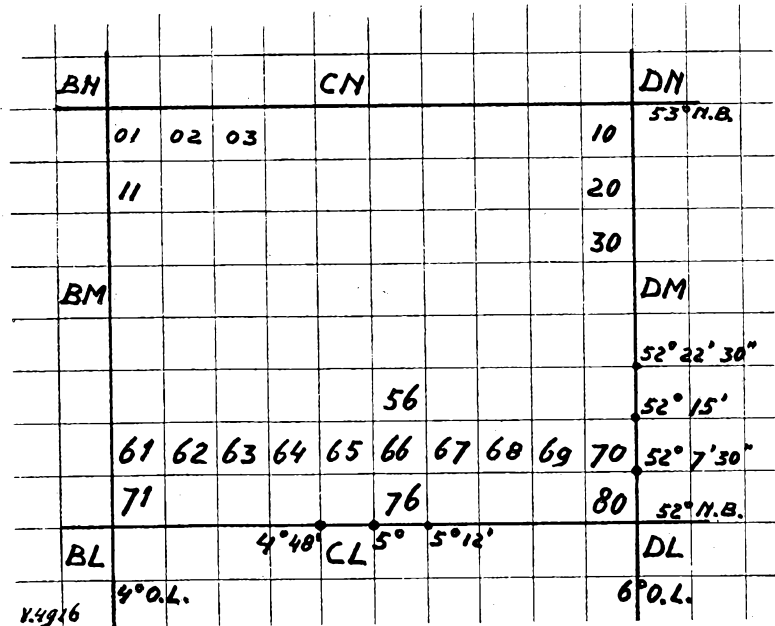 BN CN DN
53° N.B.
01 02 03 10
11 20
30
BM DM
52° 22' 30"
56 52° 15'
61 62 63 64 65 66 67 68 69 70 52° 7' 30"
71 76 80 52° N.B.
4° 48' 5° 5° 12'
BL CL DL
4° O.L. 6° O.L.
V.4926